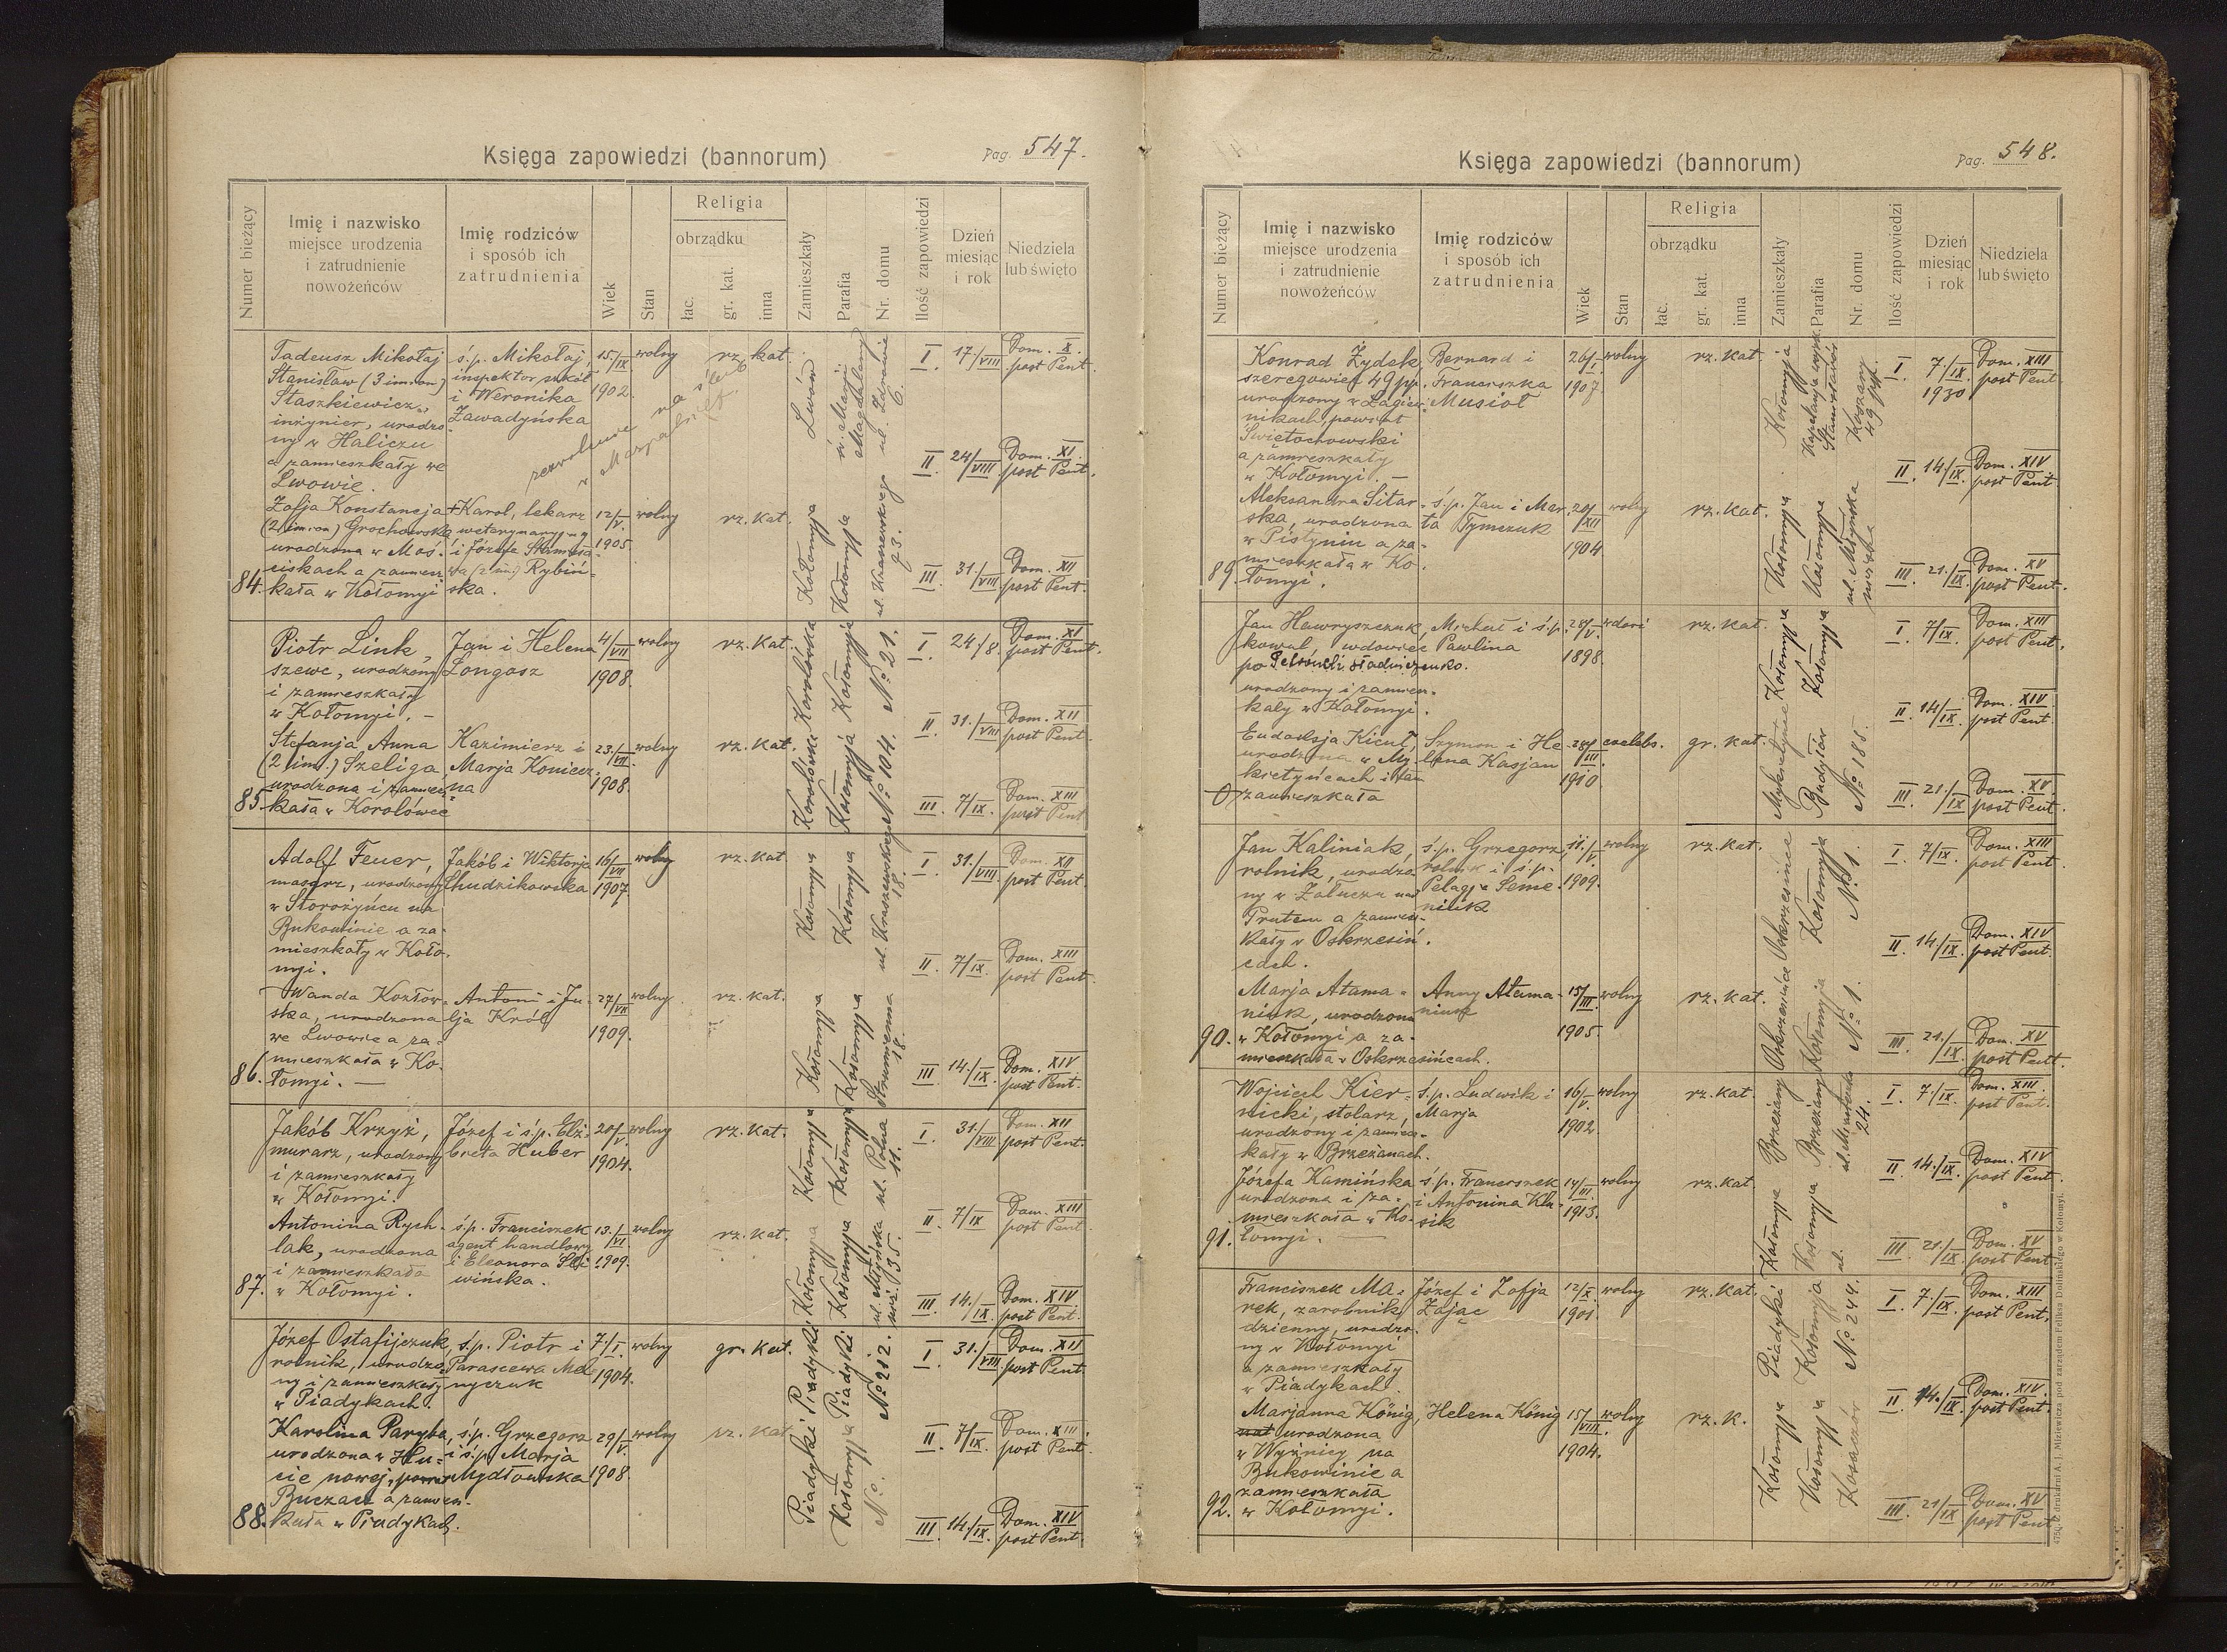 Księga zapowiedzi (bannorum)
Pag. 547.
Numer bieżący
Imię i nazwisko
miejsce urodzenia
i zatrudnienie
nowożeńców
Imię rodziców
i sposób ich
zatrudnienia
Wiek
Stan
Religia
obrządku
łac.
gr. kat.
inna
Zamieszkały
Parafia
Nr. domu
Ilość zapowiedzi
Dzień
miesiąc
i rok
Niedziela
lub święto
84.
Tadeusz Mikołaj
Stanisław (3 imion)
Staszkiewicz,
inżynier, urodzo-
ny w Haliczu
a zamieszkały we
Lwowie.
ś.p. Mikołaj
inspektor szkół
i Weronika
Zawadyńska
15/IX
1902.
wolny
rz. kat.
Lwów
św. Marji
Magdaleny
ul. Zdrowie
6.
I 17./VIII Dom. X.
post Pent.
II 24/VIII Dom. XI.
post Pent.
III. 31./VIII Dom. XII
post Pent.
Zofja Konstancja
(2 imion) Grochowska
urodzona w Moś-
ciskach a zamiesz-
kała w Kołomyi
+Karol, lekarz
weterynaryjny
i Józefa Stanisła-
wa (2 im.) Rybiń-
ska.
12/V.
1905.
wolny
rz. kat.
Kołomyja
Kołomyja
ul. Kraszewskiego
93.
85.
Piotr Link,
szewc, urodzony
i zamieszkały
w Kołomyi. —
Jan i Helena
Longosz
4/VII
1908.
wolny
rz. kat.
Korolówka
Kołomyja
N° 21.
I 24./8. Dom. XI
post Pent.
II. 31./VIII Dom. XII
post Pent.
III. 7/IX. Dom. XIII
post Pent
Stefanja Anna
(2 im.) Szeliga,
urodzona i zamiesz-
kała w Korolówce
Kazimierz i
Marja Koniecz-
na
23./VII.
1908.
wolny
rz. kat.
Korolówka
Kołomyja
N° 104.
86.
Adolf Feuer,
masarz, urodzony
w Storożyńcu na
Bukowinie a za-
mieszkały w Koło-
myi.
Jakób i Wiktorja
Chudzikowska
16/VII
1907
wolny
rz. kat
Kołomyja
Kołomyja
ul. Kraszewskiego
18.
I. 31./VIII. Dom. XII
post Pent.
II. 7/IX. Dom. XIII
post Pent.
III 14./IX. Dom. XIV
post Pent.
Wanda Kozłow-
ska, urodzona
we Lwowie a za-
mieszkała w Ko-
łomyi. —
Antoni i Ju-
lja Król
27/VII
1909.
wolny.
rz. kat.
Kołomyja
Kołomyja
Strumienna
18.
87.
Jakób Krzyż,
murarz, urodzony
i zamieszkały
w Kołomyi.
Józef i ś.p. Elż-
bieta Huber
20/V.
1904.
wolny
rz. kat.
Kołomyja
Kołomyja
ul. Polna
11.
I. 31./VIII Dom. XII
post Pent.
II. 7/IX Dom. XIII
post Pent
III. 14./IX. Dom. XIV
post Pent.
Antonina Rych-
lak, urodzona
i zamieszkała
w Kołomyi.
ś.p. Franciszek
agent handlowy
i Eleonora Śli-
wińska.
13./VI.
1909.
wolny
rz. kat.
Kołomyja
Kołomyja
ul. Młyńska
niż. 35.
88.
Józef Ostafijczuk,
rolnik, urodzo-
ny i zamieszkały
w Piadykach.
ś.p. Piotr i
Parascewa Mel
nyczuk
7./I.
1904.
wolny
gr. kat.
Piadyki
Piadyki
N° 212.
I 31./VIII Dom. XII
post Pent.
II. 7/IX. Dom. XIII.
post Pent.
III. 14./IX. Dom. XIV
post Pent.
Karolina Paryba,
urodzona w Hu-
cie nowej, powiat
Buczacz a zamiesz-
kała w Piadykach.
ś.p. Grzegorz
i ś.p. Marja
Mydłowska
29/V.
1908.
wolny
rz. kat
Piadyki
Kołomyja
N°.
Księga zapowiedzi (bannorum)
Pag. 548.
Numer bieżący
Imię i nazwisko
miejsce urodzenia
i zatrudnienie
nowożeńców
Imię rodziców
i sposób ich
zatrudnienia
Wiek
Stan
Religia
obrządku
łac.
gr. kat.
inna
Zamieszkały
Parafia
Nr. domu
Ilość zapowiedzi
Dzień
miesiąc
i rok
Niedziela
lub święto
89.
Konrad Żydek,
szeregowiec 49 pp.
urodzony w Łagiew-
nikach, powiat
Świętochowski
a zamieszkały
w Kołomyi. —
Bernard i
Franciszka
Musioł
26/I.
1907.
wolny
rz. kat.
Kołomyja
Kapelanja wojsk.
Stanisławów
Koszary
49 pp.
I. 7/IX.
1930
Dom. XIII
post Pent.
II. 14./IX. Dom. XIV
post Pent
III. 21./IX. Dom. XV
post Pent.
Aleksandra Sitar-
ska, urodzona
w Pistyniu a za-
mieszkała w Ko-
łomyi.
ś.p. Jan i Mar-
ta Tymczuk
20/XII
1904
wolny
rz. kat.
Kołomyja
Kołomyja
ul. Młyńska
niższa
0
Jan Hawryszczuk,
kowal, wdowiec
po
urodzony i zamiesz-
kały w Kołomyi.
Michał i ś.p.
Pawlina
28/V.
1898.
rz. kat.
Kołomyja
Kołomyja
I 7/IX. Dom. XIII
post Pent.
II. 14/IX. Dom. XIV
post Pent.
III. 21./IX Dom. XV.
post Pent.
Eudoksja Kicuł,
urodzona w My-
kietyńcach i tam
zamieszkała
Szymon i He-
lena Kasjan
28/VIII.
1910.
caelebs.
gr. kat.
Mykietyńce
N° 185.
90.
Jan Kaliniak,
rolnik, urodzo-
ny w Załuczu nad
Prutem a zamiesz-
kały w Oskrzesiń-
cach.
ś.p. Grzegorz,
rolnik i ś.p.
Pelagja Seme-
niuk
11./V.
1909.
wolny
rz. kat.
Oskrzesińce
Kołomyja
N° 1.
I 7/IX. Dom. XIII
post Pent.
II. 14./IX. Dom. XIV
post Pent.
III. 21./IX Dom. XV
post Pent.
Marja Atama-
niuk, urodzona
w Kołomyi a za-
mieszkała w Oskrzesińcach.
Anny Atama-
niuk
15/III.
1905.
wolny
rz. kat.
Oskrzesińce
Kołomyja
N° 1.
91.
Wojciech Kier-
nicki, stolarz,
urodzony i zamiesz-
kały w Brzeżanach.
ś.p. Ludwik i
Marja
16/V.
1902.
wolny
rz. kat.
Brzeżany
Brzeżany
24.
I. 7/IX. Dom. XIII.
post Pent.
II 14./IX. Dom. XIV
post Pent.
III 21./IX Dom. XV
post Pent.
Józefa Kamińska
urodzona i za-
mieszkała w Ko-
łomyi. —
ś.p. Franciszek
i Antonina Klu-
sik
14/III.
1913.
wolny
rz. kat
Kołomyja
Kołomyja
ul.
92.
Franciszek Ma-
rek, zarobnik
dzienny, urodzo-
ny w Kołomyi
a zamieszkały
w Piadykach.
Józef i Zofja
Zając
12/X
1901.
wolny
rz. kat.
Piadyki
Kołomyja
N° 244.
I. 7./IX. Dom. XIII
post Pent.
II 14./IX Dom. XIV.
post Pent.
III. 21/IX Dom. XV
post Pent
Marjanna König,
urodzona
w Wyżnicy na
Bukowinie a
zamieszkała
w Kołomyi.
Helena König
15/VIII.
1904.
wolny
rz. k.
Kołomyja
Kołomyja
Kosaczów
drukarni A. J. Miziewicza pod zarządem Feliksa Dolińskiego w Kołomyi.